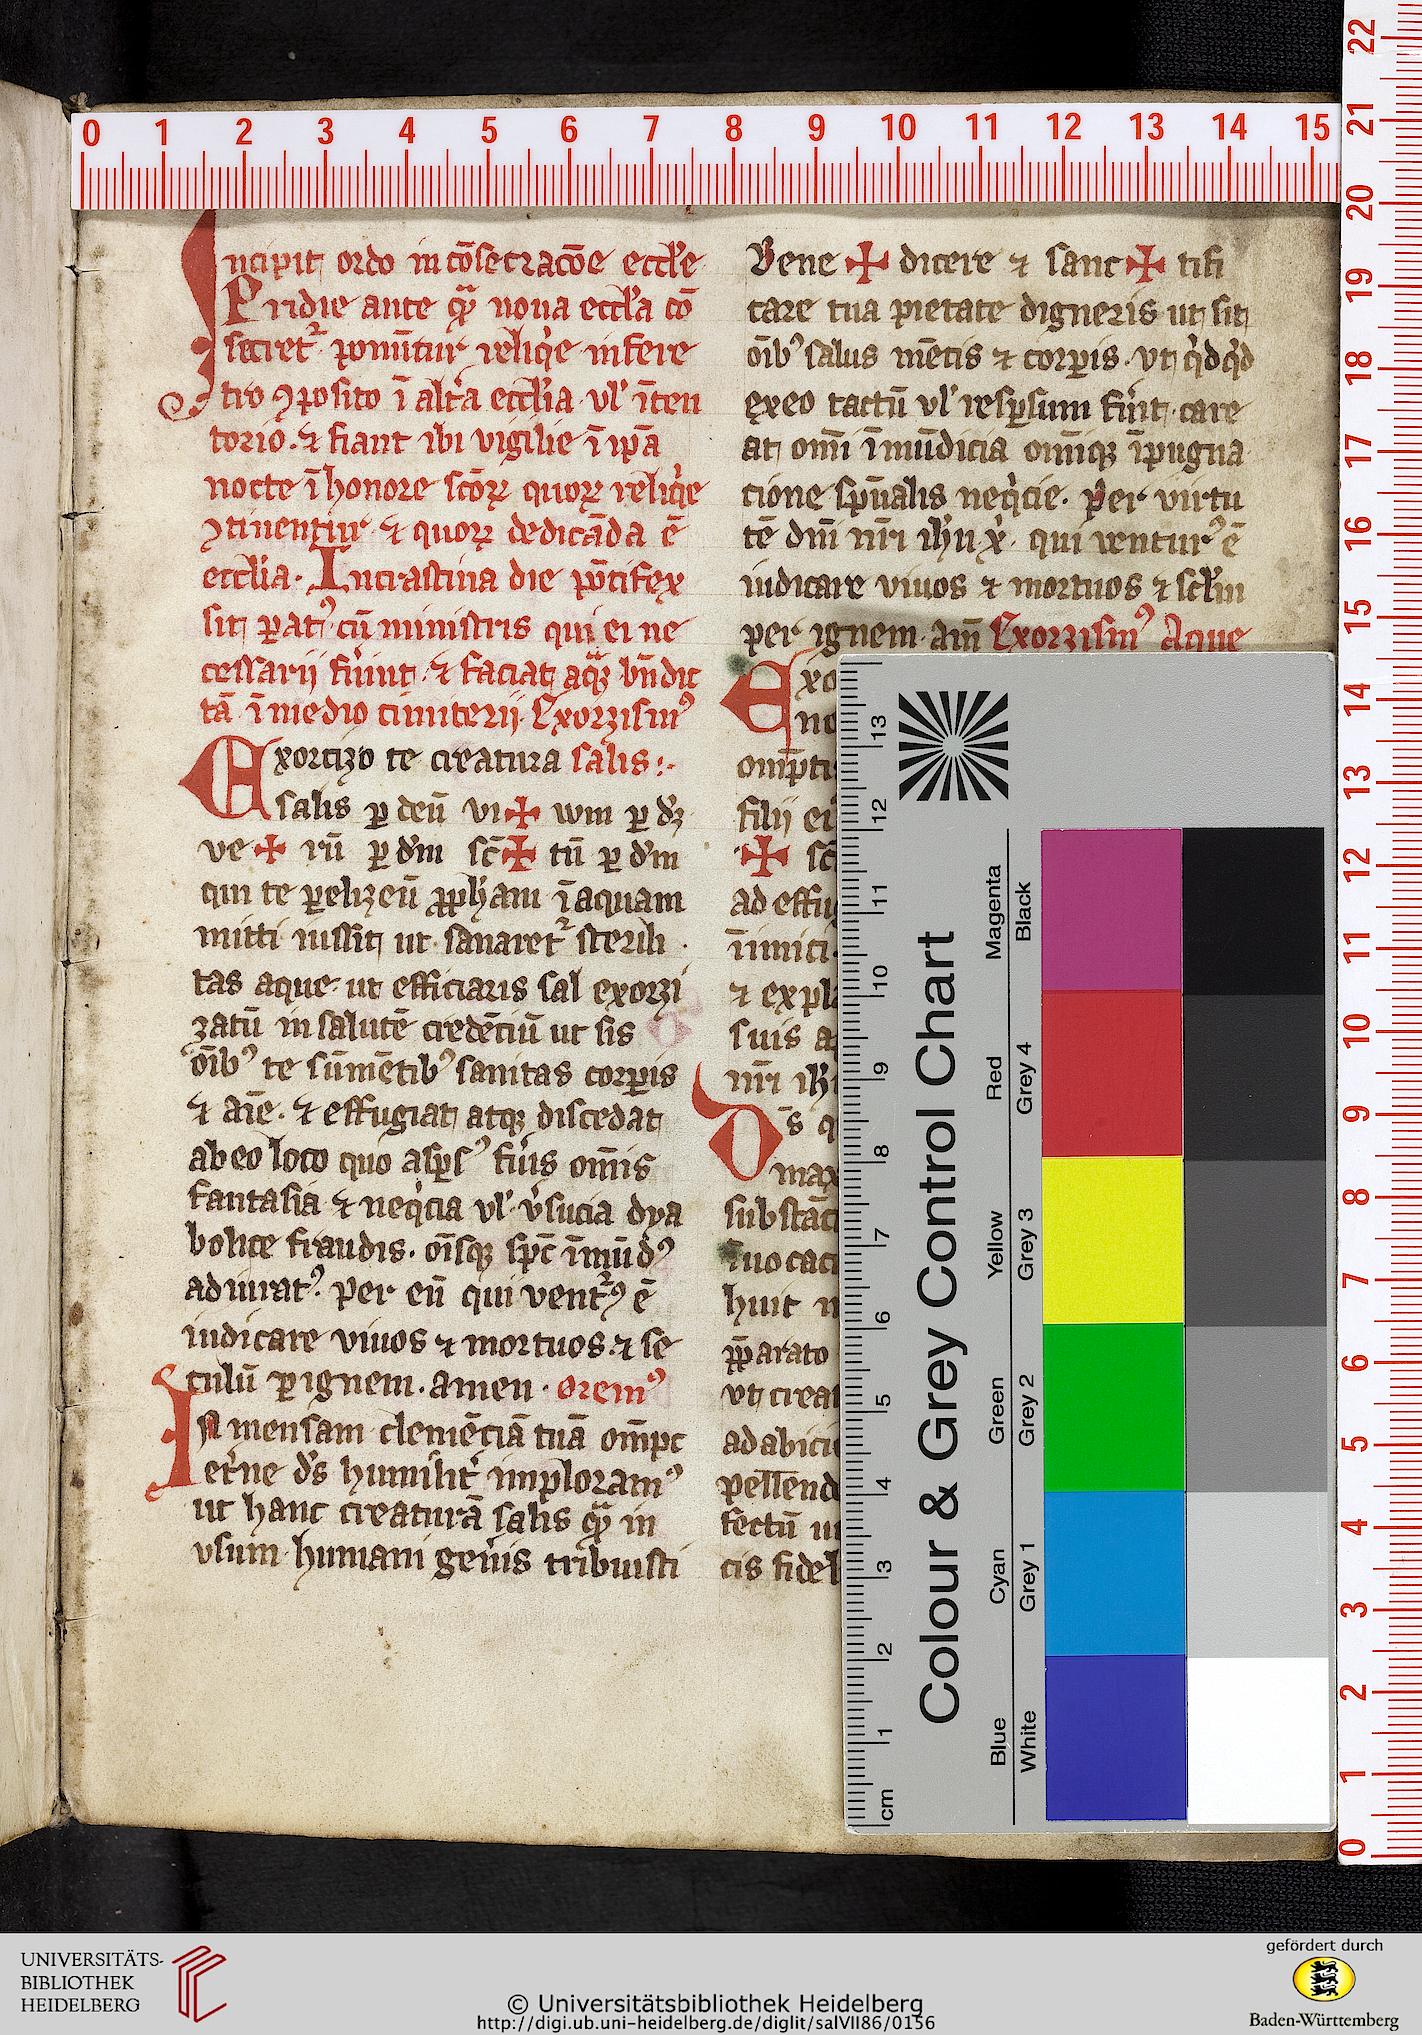 Incipit ordo in cōsecracōe eccľe
Pridie ante qͣ̄ noua eccľa cō
secret᷑ ponūtur reliq̇e infere
tro ꝯposito ī alťa eccľia vľ īten
torio. ⁊ fiant ibi vigilie ī ip̄a
nocte ī honore scōꝝ quoꝝ reliq̇e
ꝯtinentur ⁊ quoꝝ dedicāda ē
eccľia. In crastina die pōtifex
sit ꝑatꝰ cū ministris qui ei ne
cessarij fu̇int ⁊ faciat aqͣ̄ bn̄dic
tā ī medio cimiterij. Exorzismꝰ
Exorcizo te creatura salis:.
salis ꝑ deū vi✠ wm ꝑ dꝫ
ve✠ rū ꝑ dm̄ sc̄✠ tū ꝑ dm̄
qui te ꝑ elizeū ꝓph̄am ī aquam
mitti iussit ut sanaret᷑ sterili
tas aque ut efficiaris sal exorzi
zatū in salutē credēciū ut sis
oībꝰ te sūmētibꝰ sanitas corꝑis
⁊ aīe. ⁊ effugiat atqꝫ discedat
ab eo loco quo asꝑsꝰ fu̇is om̄is
fantasia ⁊ neq̇cia vľ v̇sucia dya
bolice fraudis. oīsqꝫ sp̄c īmūdꝰ
adiuratꝰ. per eū qui vent᷑ꝰ ē
iudicare viuos ⁊ mortuos ⁊ se
culū ꝑ ignem. amen. oremꝰ
In mensam clemēciā tuā om̄pc
eťne ds̄ humiliť imploramꝰ
ut hanc creaturā salis qͣ̄ in
vsum humani gen̄is tribuisti
Bene ✠ dicere ⁊ sanc✠ tifi
care tua pietate digneris ut sit
oībꝰ salus mētis ⁊ corꝑis. vt q̇dq̇d
ex eo tactū vľ resꝑsum fu̇it care
at om̄i īmūdicia om̄iqꝫ īpugna
cione sp̄ualis neq̇cie. per virtu
tē dm̄ nr̄i ih̄u x̄ qui ventur᷑ꝰ ē
iudicare viuos ⁊ mortuos ⁊ scľm
per ignem am̄ Exorzismꝰ Aque
Exo
no
om̄ptis
filij ei
✠ sc̄
ad effu
īimici.
⁊ expla
suis a
nr̄i ih̄
Ds̄ q
max
substāc
īuocaci
huic n
p̄parato
vt creat
ad abicie
pellend
fectū
cis fidel
0 1 2 3 4 5 6 7 8 9 10 11 12 13 14 15
22
21
20
19
18
17
16
15
14
13
12
11
10
9
8
7
6
5
4
3
2
1
0
13
12
11
10
9
8
7
6
5
4
3
2
1
cm
Colour & Grey Control Chart
Magenta
Red
Yellow
Green
Cyan
Blue
Black
Grey 4
Grey 3
Grey 2
Grey 1
White
UNIVERSITÄTS-
BIBLIOTHEK
HEIDELBERG
© Universitätsbibliothek Heidelberg
http://digi.ub.uni-heidelberg.de/diglit/salVII86/0156
gefördert durch
Baden-Württemberg